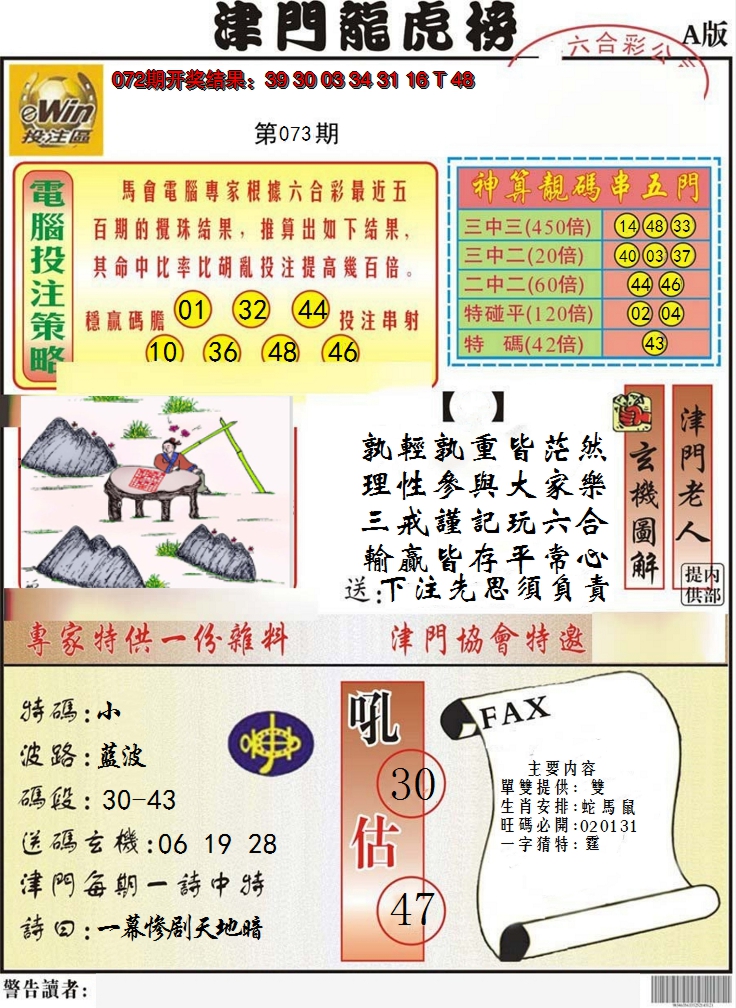 津門龍虎榜
A版
六合彩公司
072期开奖结果：39 30 03 34 31 16 T 48
eWin
投注區
第073期
電腦投注策略
馬會電腦專家根據六合彩最近五
百期的攪珠结果，推算出如下结果，
其命中比率比胡亂投注提高幾百倍。
穩贏碼膽 01 32 44 投注串射
10 36 48 46
神算靚碼串五門
三中三(450倍) 14 48 33
三中二(20倍) 40 03 37
二中二(60倍) 44 46
特碰平(120倍) 02 04
特 碼(42倍) 43
【 】
孰輕孰重皆茫然
理性參與大家樂
三戒謹記玩六合
輸贏皆存平常心
送:下注先思須負責
玄機圖解
津門老人
內部提供
專家特供一份雜料
津門協會特邀
特碼:小
波路:藍波
碼段:30-43
送碼玄機:06 19 28
津門每期一詩中特
詩曰:一幕慘剧天地暗
吼 30
估 47
FAX
主要内容
單雙提供: 雙
生肖安排:蛇馬鼠
旺碼必開:020131
一字猜特:霆
警告讀者: